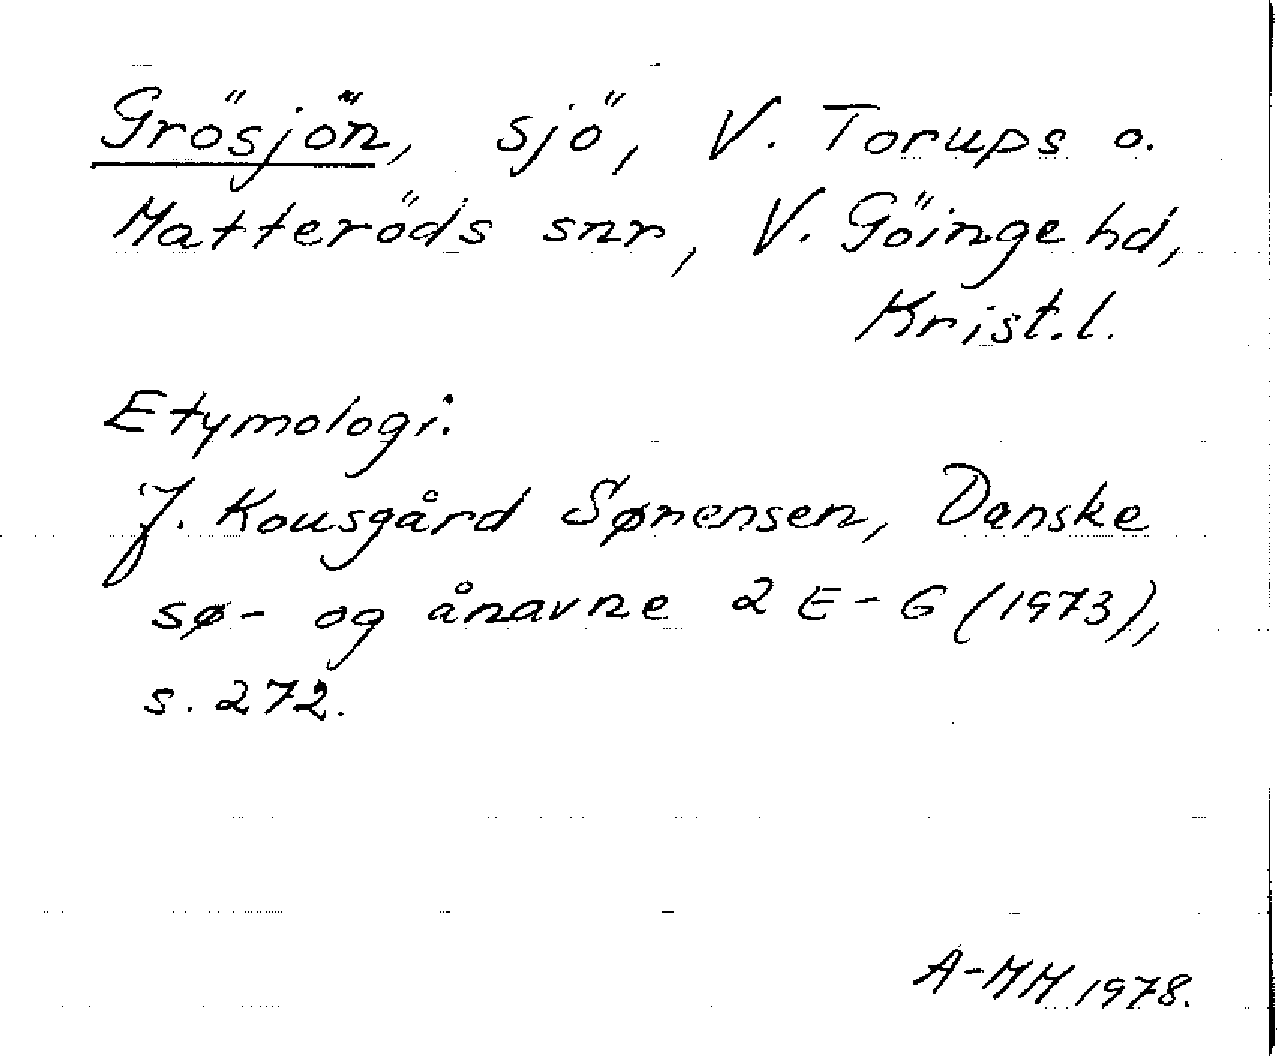 Grösjön, sjö, V. Torups o.
Matteröds snr, V. Göinge hd,
Krist.l.
Etymologi:
J. Kousgård Sørensen, Danske
sø- og ånavne 2 E-G (1973),
s. 272.
A-MM 1978.